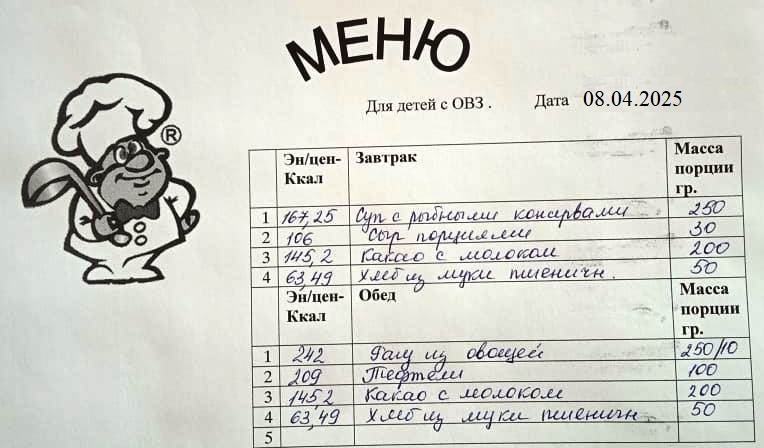 МЕНЮ
®
Для детей с ОВЗ . Дата 08.04.2025
Эн/цен-Ккал Завтрак Масса порции гр.
1 167,25 Суп с рыбными консервами 250
2 106 Сыр порциями 30
3 145,2 Какао с молоком 200
4 63,49 Хлеб из муки пшеничн. 50
Эн/цен-Ккал Обед Масса порции гр.
1 242 Рагу из овощей 250/10
2 209 Тефтели 100
3 145,2 Какао с молоком 200
4 63,49 Хлеб из муки пшеничн. 50
5